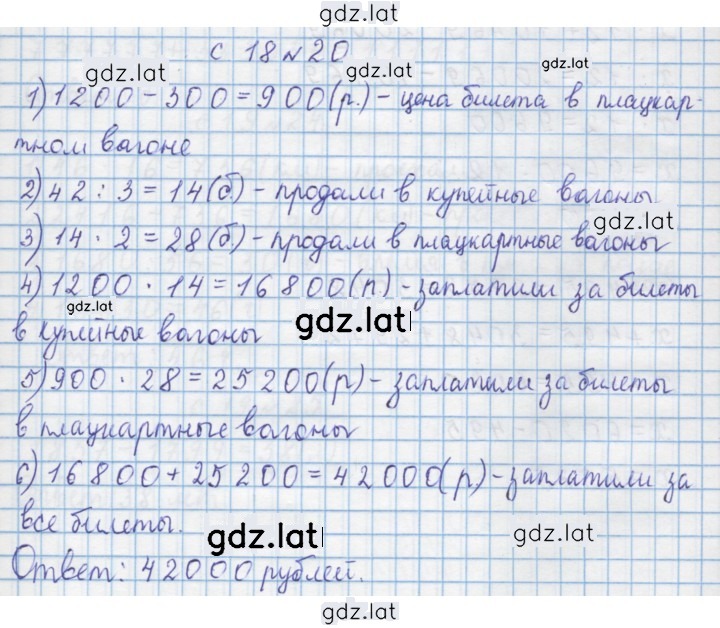 gdz.lat
с 18 № 20
gdz.lat
gdz.lat
1) 1200 - 300 = 900 (р.) - цена билета в плацкар-
тном вагоне
2) 42 : 3 = 14 (б.) - продали в купейные вагоны
gdz.lat
3) 14 · 2 = 28 (б) - продали в плацкартные вагоны
4) 1200 · 14 = 16800 (р) - заплатили за билеты
gdz.lat
gdz.lat
в купейные вагоны
5) 900 · 28 = 25200 (р) - заплатили за билеты
в плацкартные вагоны
6) 16800 + 25200 = 42000 (р) - заплатили за
все билеты.
gdz.lat
gdz.lat
Ответ: 42000 рублей.
gdz.lat